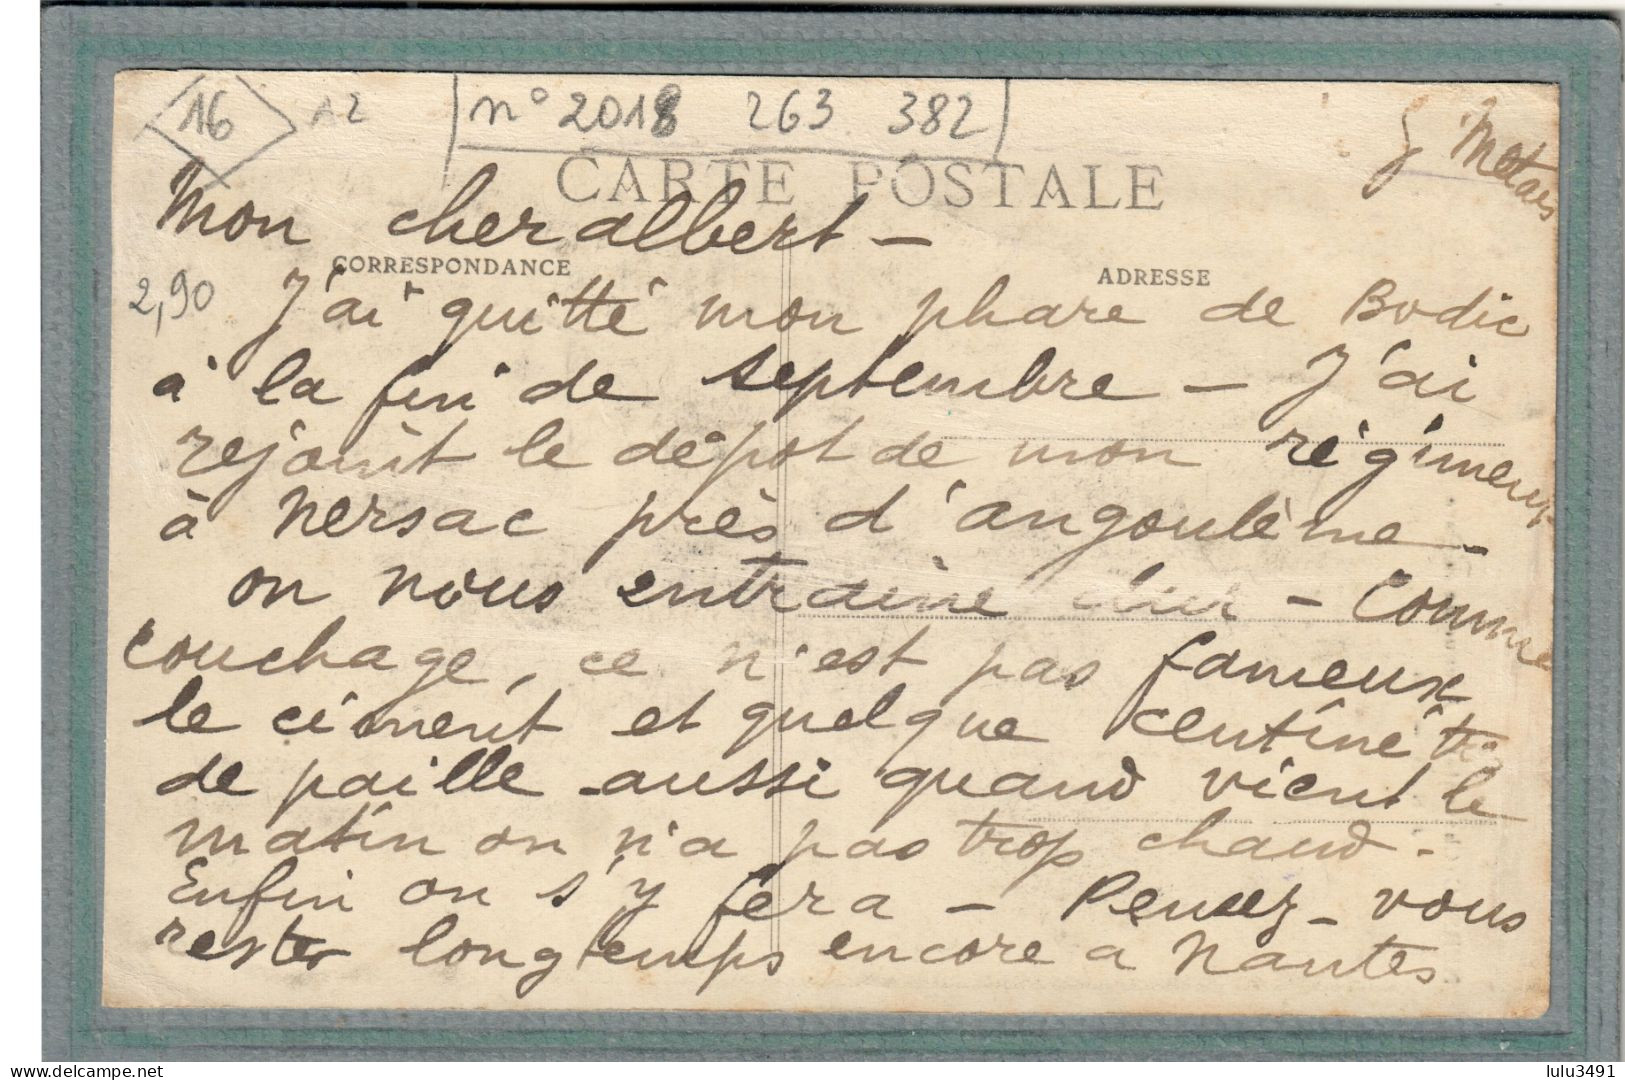 16 A2 n° 2018 263 382
G Metais
CARTE POSTALE
Mon cher albert -
CORRESPONDANCE
ADRESSE
2,90 J'ai quitté mon phare de Bodic
à la fin de septembre - J'ai
rejoint le dépot de mon régiment
à Nersac près d'angoulème -
on nous entraine dur - Comme
couchage, ce n'est pas fameux
le ciment et quelque centimètres
de paille aussi quand vient le
matin on n'a pas trop chaud -
Enfin on s'y fera - Pensez-vous
rester longtemps encore a Nantes
lulu3491